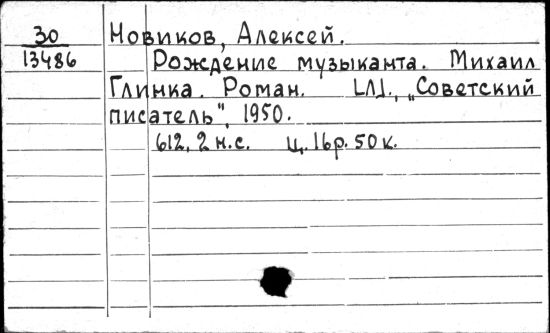 30
13486
Новиков, Алексей.
Рождение музыканта. Михаил
Глинка. Роман. [Л]., „Советский
писатель", 1950.
612, 2 н.с. ц. 16р. 50к.